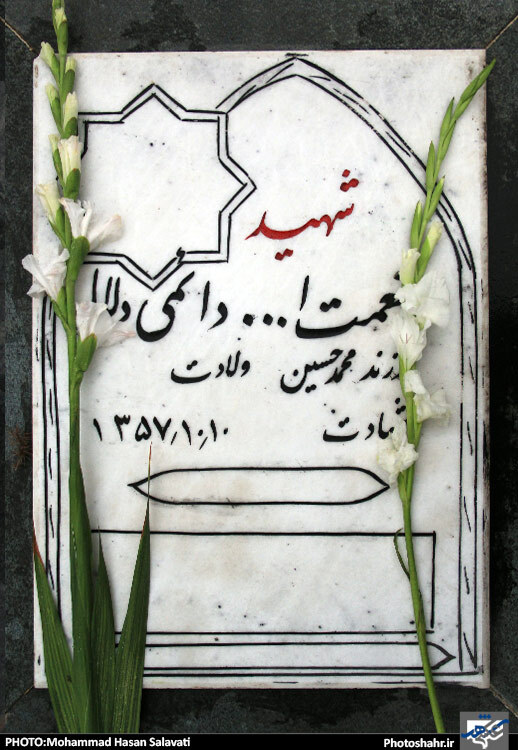 شهید
نعمت ا... دائمی دلالا
فرزند محمدحسین ولادت
شهادت ۱۳۵۷٫۱۰٫۱۰
PHOTO:Mohammad Hasan Salavati
Photoshahr.ir